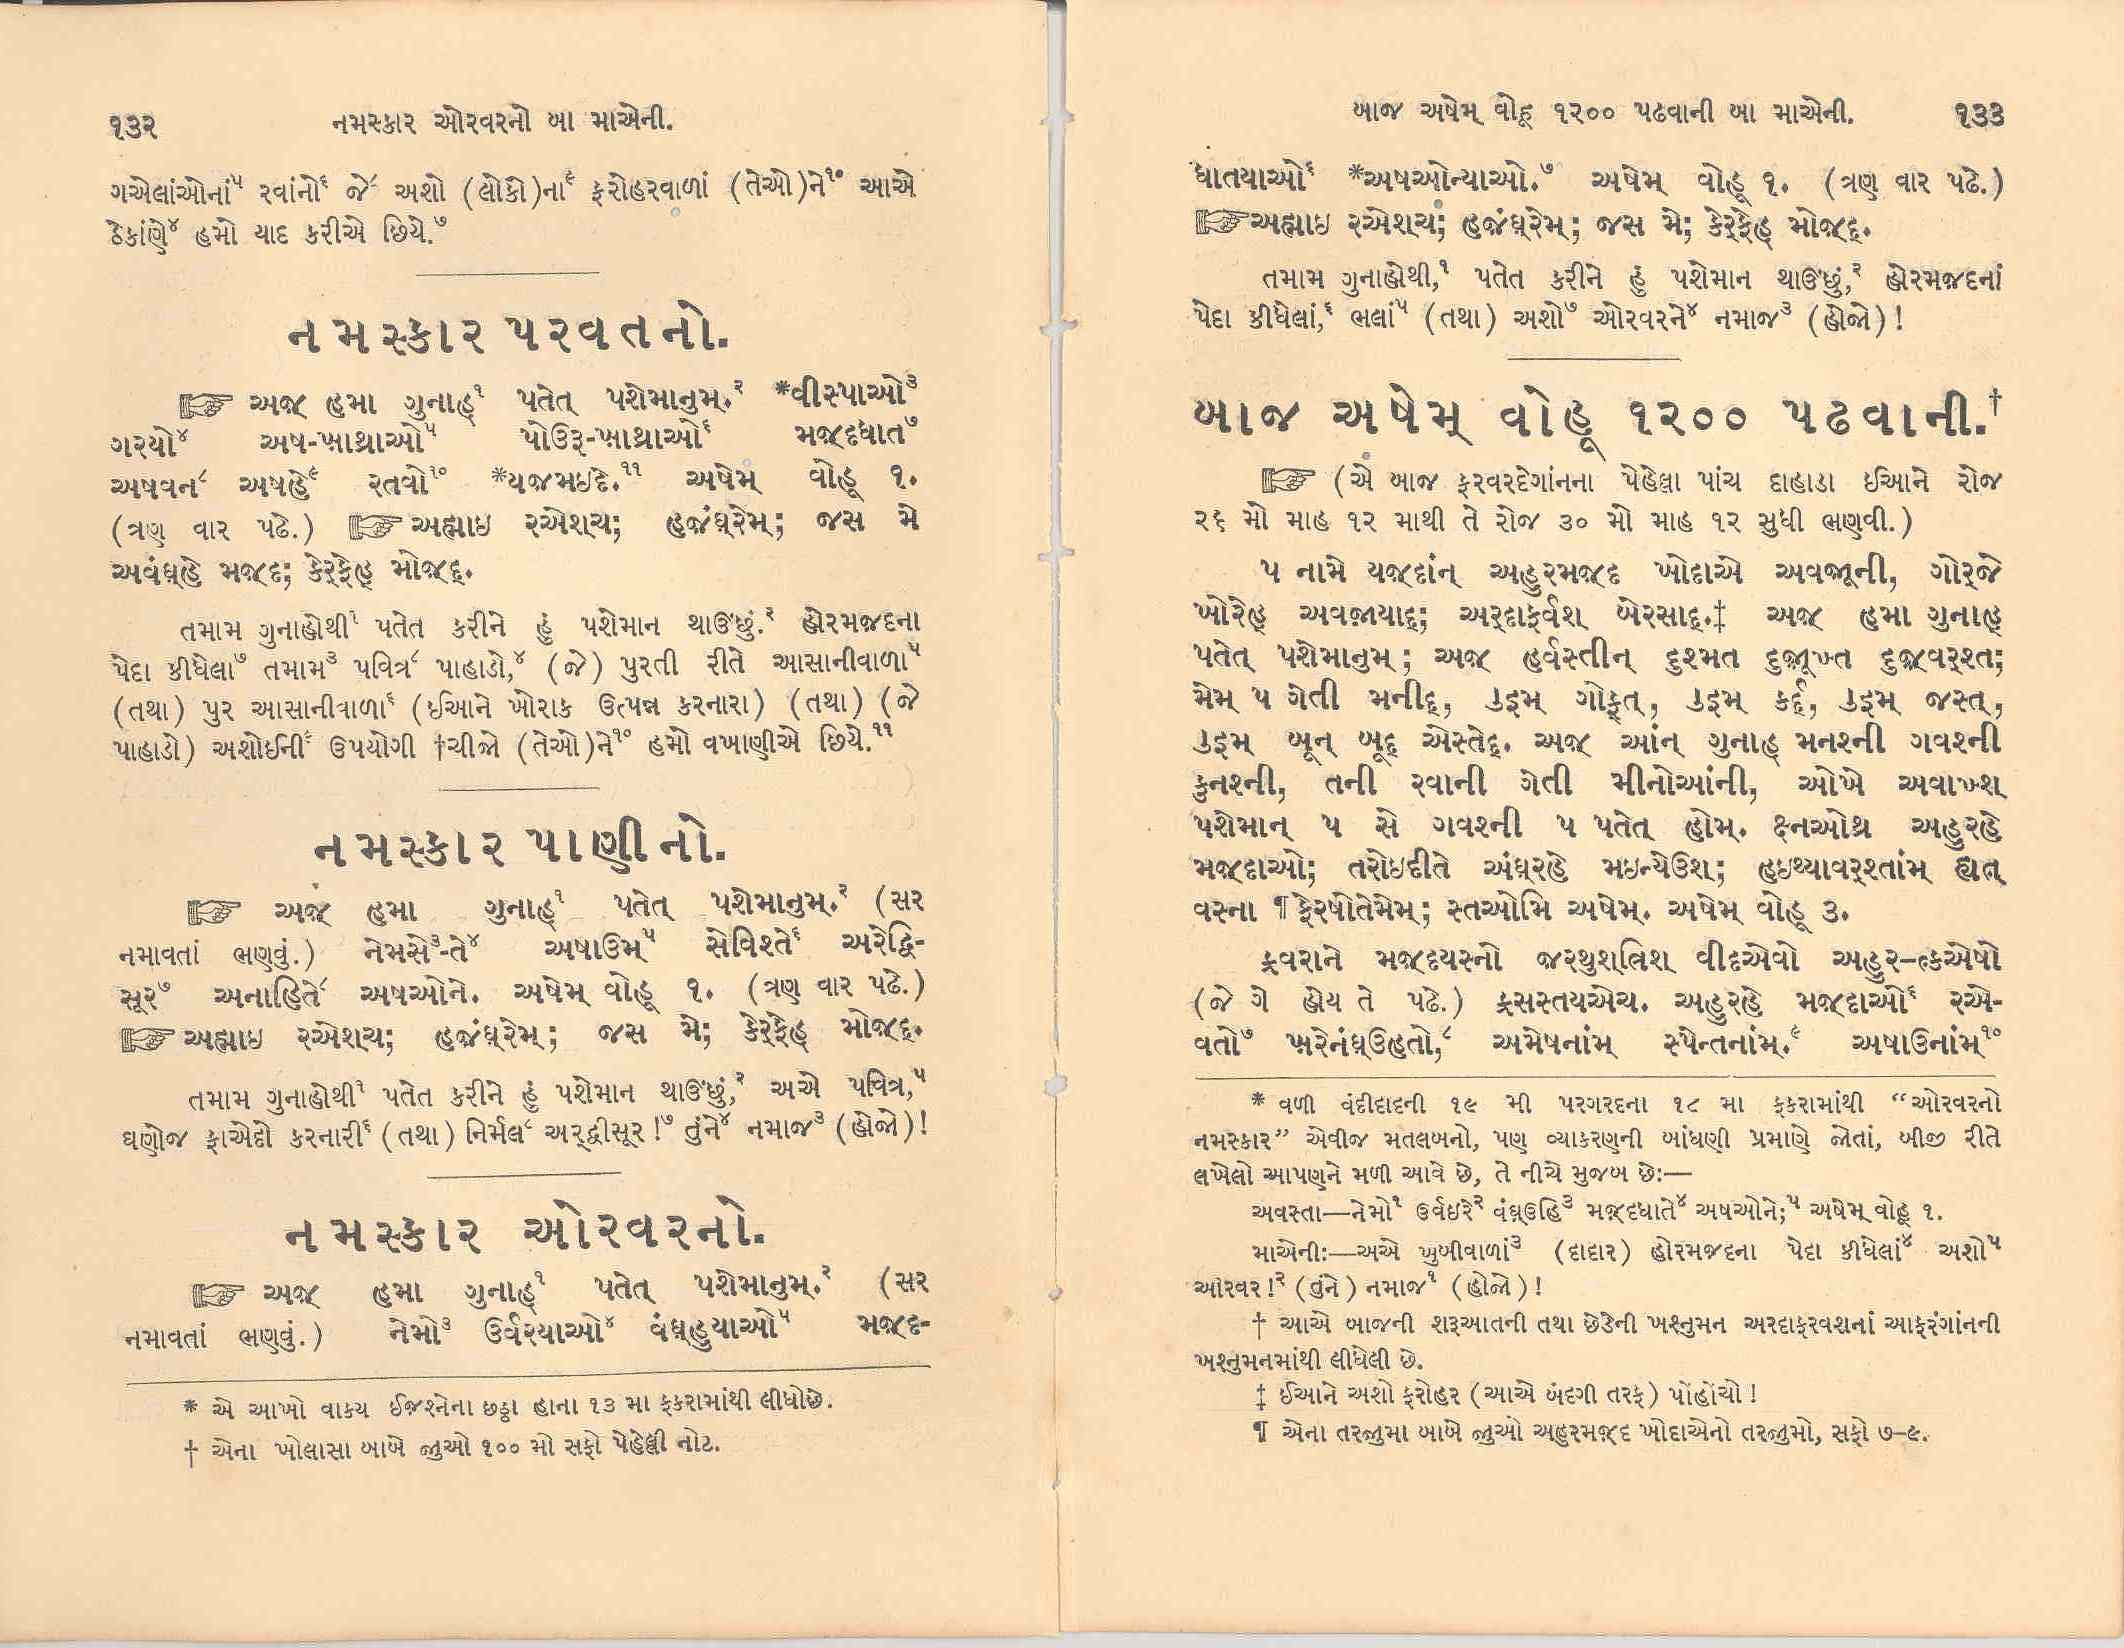 ૧૩૨ નમસ્કાર ઓરવરનો બા માએની.
ગએલાંઓનાં૫ રવાંનો૬ જે૮ અશો (લોકો)ના૯ ફરોહરવાળાં (તેઓ)ને૧૦ આએ
ઠેકાંણે૪ હમો યાદ કરીએ છિયે.૭
નમસ્કાર પરવતનો.
☞ અજ઼ હમા ગુનાહ્૧ પતેત્ પશેમાનુમ્.૨ *વીસ્પાઓ૩
ગરયો૪ અષ-ખ઼ાથ્રાઓ૫ પોઉરૂ-ખ઼ાથ્રાઓ૬ મજ઼્દધાત૭
અષવન૮ અષહે૯ રતવો૧૦ *યજમઇદે.૧૧ અષેમ્ વોહૂ ૧.
(ત્રણ વાર પઢે.) ☞ અહ્માઇ રએશ્ચ; હજ઼ંઘ્રેમ્; જસ મે
અવંઘ્હે મજ઼્દ; કેર્ફેહ્ મોજ઼્દ્.
તમામ ગુનાહોથી૧ પતેત કરીને હું પશેમાન થાઊંછું.૨ હોરમજ઼્દના
પેદા કીધેલા૭ તમામ૩ પવિત્ર૮ પાહાડો,૪ (જે) પુરતી રીતે આસાનીવાળા૫
(તથા) પુર આસાનીવાળા૬ (ઈઆને ખોરાક ઉત્પન્ન કરનારા) (તથા) (જે
પાહાડો) અશોઈની૯ ઉપયોગી †ચીજો (તેઓ)ને૧૦ હમો વખાણીએ છિયે.૧૧
નમસ્કાર પાણીનો.
☞ અજ઼્ હમા ગુનાહ્૧ પતેત્ પશેમાનુમ્.૨ (સર
નમાવતાં ભણવું.) નેમસે૩-તે૪ અષાઉમ્૫ સેવિશ્તે૬ અરેદ્વિ-
સૂર૭ અનાહિતે૮ અષઓને. અષેમ્ વોહૂ ૧. (ત્રણ વાર પઢે.)
☞ અહ્માઇ રએશ્ચ; હજ઼ંઘ્રેમ્; જસ મે; કેર્ફેહ્ મોજ઼્દ્.
તમામ ગુનાહોથી૧ પતેત કરીને હું પશેમાન થાઊંછું,૨ અએ પવિત્ર,૫
ઘણોજ ફાએદો કરનારી૬ (તથા) નિર્મલ૮ અર્દ્વીસૂર!૭ તુંને૪ નમાજ૩ (હોજો)!
નમસ્કાર ઓરવરનો.
☞ અજ઼્ હમા ગુનાહ્૧ પતેત્ પશેમાનુમ્.૨ (સર
નમાવતાં ભણવું.) નેમો૩ ઉર્વરયાઓ૪ વંઘ્હુયાઓ૫ મજ઼્દ-
* એ આખો વાક્ય ઈજ઼શ્નેના છઠ્ઠા હાના ૧૩ મા ફકરામાંથી લીધોછે.
† એના ખોલાસા બાબે જુઓ ૧૦૦ મો સફો પેહેલ્લી નોટ.
બાજ અષેમ્ વોહૂ ૧૨૦૦ પઢવાની બા માએની. ૧૩૩
ધાતયાઓ૬ *અષઓન્યાઓ.૭ અષેમ્ વોહૂ ૧. (ત્રણ વાર પઢે.)
☞ અહ્માઇ રએશ્ચ; હજ઼ંઘ્રેમ્; જસ મે; કેર્ફેહ્ મોજ઼્દ્.
તમામ ગુનાહોથી,૧ પતેત કરીને હું પશેમાન થાઊંછું,૨ હોરમજ઼્દનાં
પેદા કીધેલાં,૬ ભલાં૫ (તથા) અશો૭ ઓરવરને૪ નમાજ૩ (હોજો)!
બાજ અષેમ્ વોહૂ ૧૨૦૦ પઢવાની.†
☞ (એ બાજ ફરવરદેગાંનના પેહેલા પાંચ દાહાડા ઈઆને રોજ
૨૬ મો માહ ૧૨ માથી તે રોજ ૩૦ મો માહ ૧૨ સુધી ભણવી.)
પ નામે યજ઼્દાંન્ અહુરમજ઼્દ ખોદાએ અવજ઼ૂની, ગોર્જે
ખોરેહ્ અવજ઼ાયાદ્; અર્દાફર્વશ બેરસાદ્.‡ અજ઼્ હમા ગુનાહ્
પતેત્ પશેમાનુમ્; અજ઼ હર્વસ્તીન્ દુશ્મત દુજ઼ૂખ્ત દુજ઼્વર્શ્ત;
મેમ્ પ ગેતી મનીદ્, ઉઇમ્ ગોફ્ત્, ઉઇમ્ કર્દ્, ઉઇમ્ જસ્ત્,
ઉઇમ્ બૂન્ બૂદ્ એસ્તેદ્. અજ઼ આંન્ ગુનાહ્ મનશ્ની ગવશ્ની
કુનશ્ની, તની રવાની ગેતી મીનોઆંની, ઓખે અવાખ્શ્
પશેમાન્ પ સે ગવશ્ની પ પતેત્ હોમ્. ક્ષ્નઓથ્ર અહુરહે
મજ઼્દાઓ; તરોઇદીતે અંઘ્રહે મઇન્યેઉશ્; હઇથ્યાવર્શ્તાંમ્ હ્યત્
વસ્ના ¶ ફેરષોતેમેમ્; સ્તઓમિ અષેમ્. અષેમ્ વોહૂ ૩.
ફ્રવરાને મજ઼્દયસ્નો જરથુશ્ત્રિશ્ વીદએવો અહુર-ત્કએષો
(જે ગે હોય તે પઢે.) ફ્રસસ્તયએચ. અહુરહે મજ઼્દાઓ૬ રએ-
વતો૭ ખ઼રેનંઘ્ઉહતો,૮ અમેષનાંમ્ સ્પેન્તનાંમ્.૯ અષાઉનાંમ્૧૦
* વળી વંદીદાદની ૧૯ મી પરગરદના ૧૮ મા ફકરામાંથી “ઓરવરનો
નમસ્કાર” એવીજ મતલબનો, પણ વ્યાકરણની બાંધણી પ્રમાણે જોતાં, બીજી રીતે
લખેલો આપણને મળી આવે છે, તે નીચે મુજબ છેઃ—
અવસ્તા—નેમો૧ ઉર્વઇરે૨ વંઘ્ઉહિ૩ મજ઼્દધાતે૪ અષઓને;૫ અષેમ્ વોહૂ ૧.
માએનીઃ—અએ ખુબીવાળાં૩ (દાદાર) હોરમજ઼્દના પેદા કીધેલાં૪ અશો૫
ઓરવર!૨ (તુંને) નમાજ૧ (હોજો)!
† આએ બાજની શરૂઆતની તથા છેડેની ખશ્નુમન અરદાફરવશનાં આફરંગાંનની
ખશ્નુમનમાંથી લીધેલી છે.
‡ ઈઆને અશો ફરોહર (આએ બંદગી તરફ) પોંહોંચો!
¶ એના તરજુમા બાબે જુઓ અહુરમજ઼્દ ખોદાએનો તરજુમો, સફો ૭-૯.